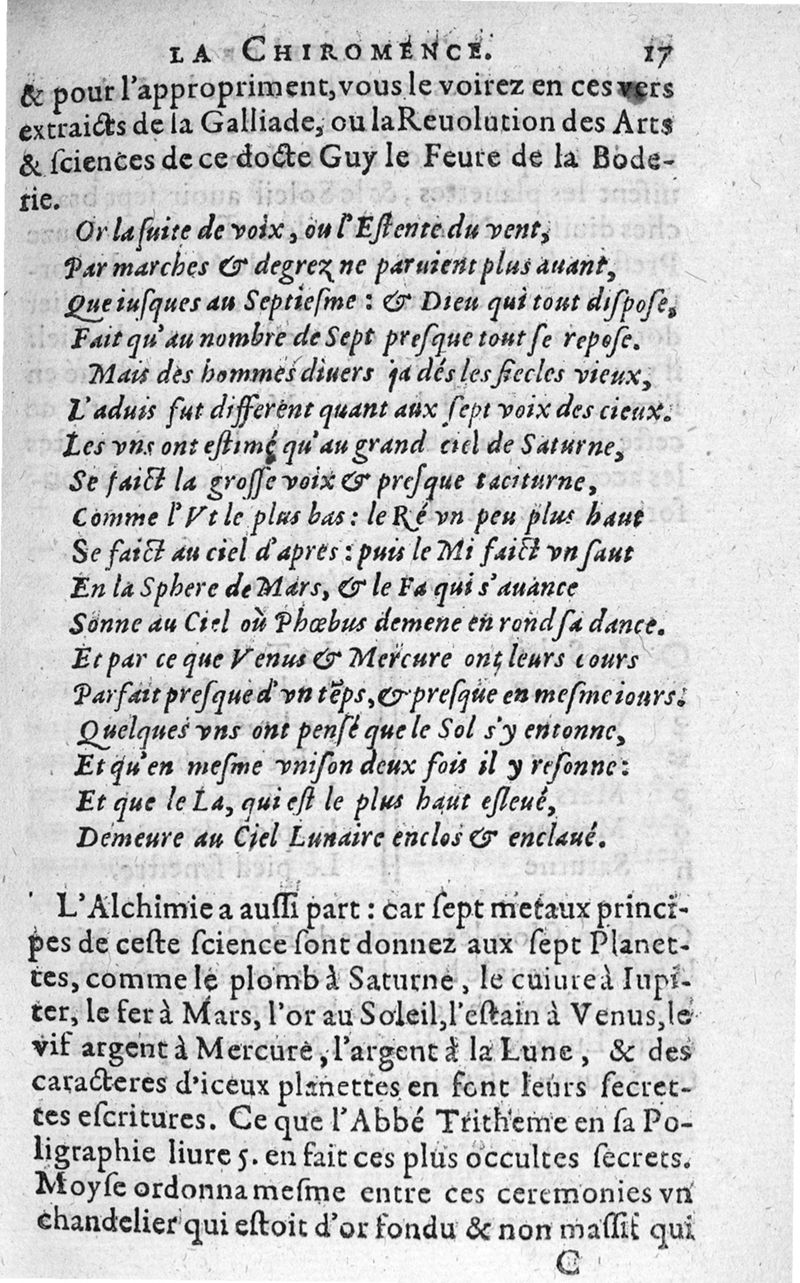 LA CHIROMENCE. 17
& pour l'approprimẽt, vous le voirez en ces vers
extraicts de la Galliade, ou la Reuolution des Arts
& ſciences de ce docte Guy le Feure de la Bode-
rie.
Or la ſuite de voix, ou l'Eſtente du vent,
Par marches & degrez ne paruient plus auant,
Que iuſques au Septieſme : & Dieu qui tout diſpoſe,
Fait qu'au nombre de Sept preſque tout ſe repoſe.
Mais des hommes diuers ja dés les ſiecles vieux,
L'aduis fut different quant aux ſept voix des cieux.
Les vns ont eſtimé qu'au grand ciel de Saturne,
Se faict la groſſe voix & preſque taciturne,
Comme l'Vt le plus bas : le Ré vn peu plus haut
Se faict au ciel d'apres : puis le Mi faict vn ſaut
En la Sphere de Mars, & le Fa qui s'auance
Sonne au Ciel où Phœbus demene en rond ſa dance.
Et par ce que Venus & Mercure ont leurs cours
Parfait preſque d'vn tẽps, & preſque en meſme iours.
Quelques vns ont penſé que le Sol s'y entonne,
Et qu'en meſme vniſon deux fois il y reſonne :
Et que le La, qui eſt le plus haut eſleué,
Demeure au Ciel Lunaire enclos & enclaué.
L'Alchimie a auſſi part : car ſept metaux princi-
pes de ceſte ſcience ſont donnez aux ſept Planet-
tes, comme le plomb à Saturne, le cuiure à Iupi-
ter, le fer à Mars, l'or au Soleil, l'eſtain à Venus, le
vif argent à Mercure, l'argent à la Lune, & des
caracteres d'iceux planettes en font leurs ſecret-
tes eſcritures. Ce que l'Abbé Tritheme en ſa Po-
ligraphie liure 5. en fait ces plus occultes ſecrets.
Moyſe ordonna meſme entre ces ceremonies vn
chandelier qui eſtoit d'or fondu & non maſſif qui
C